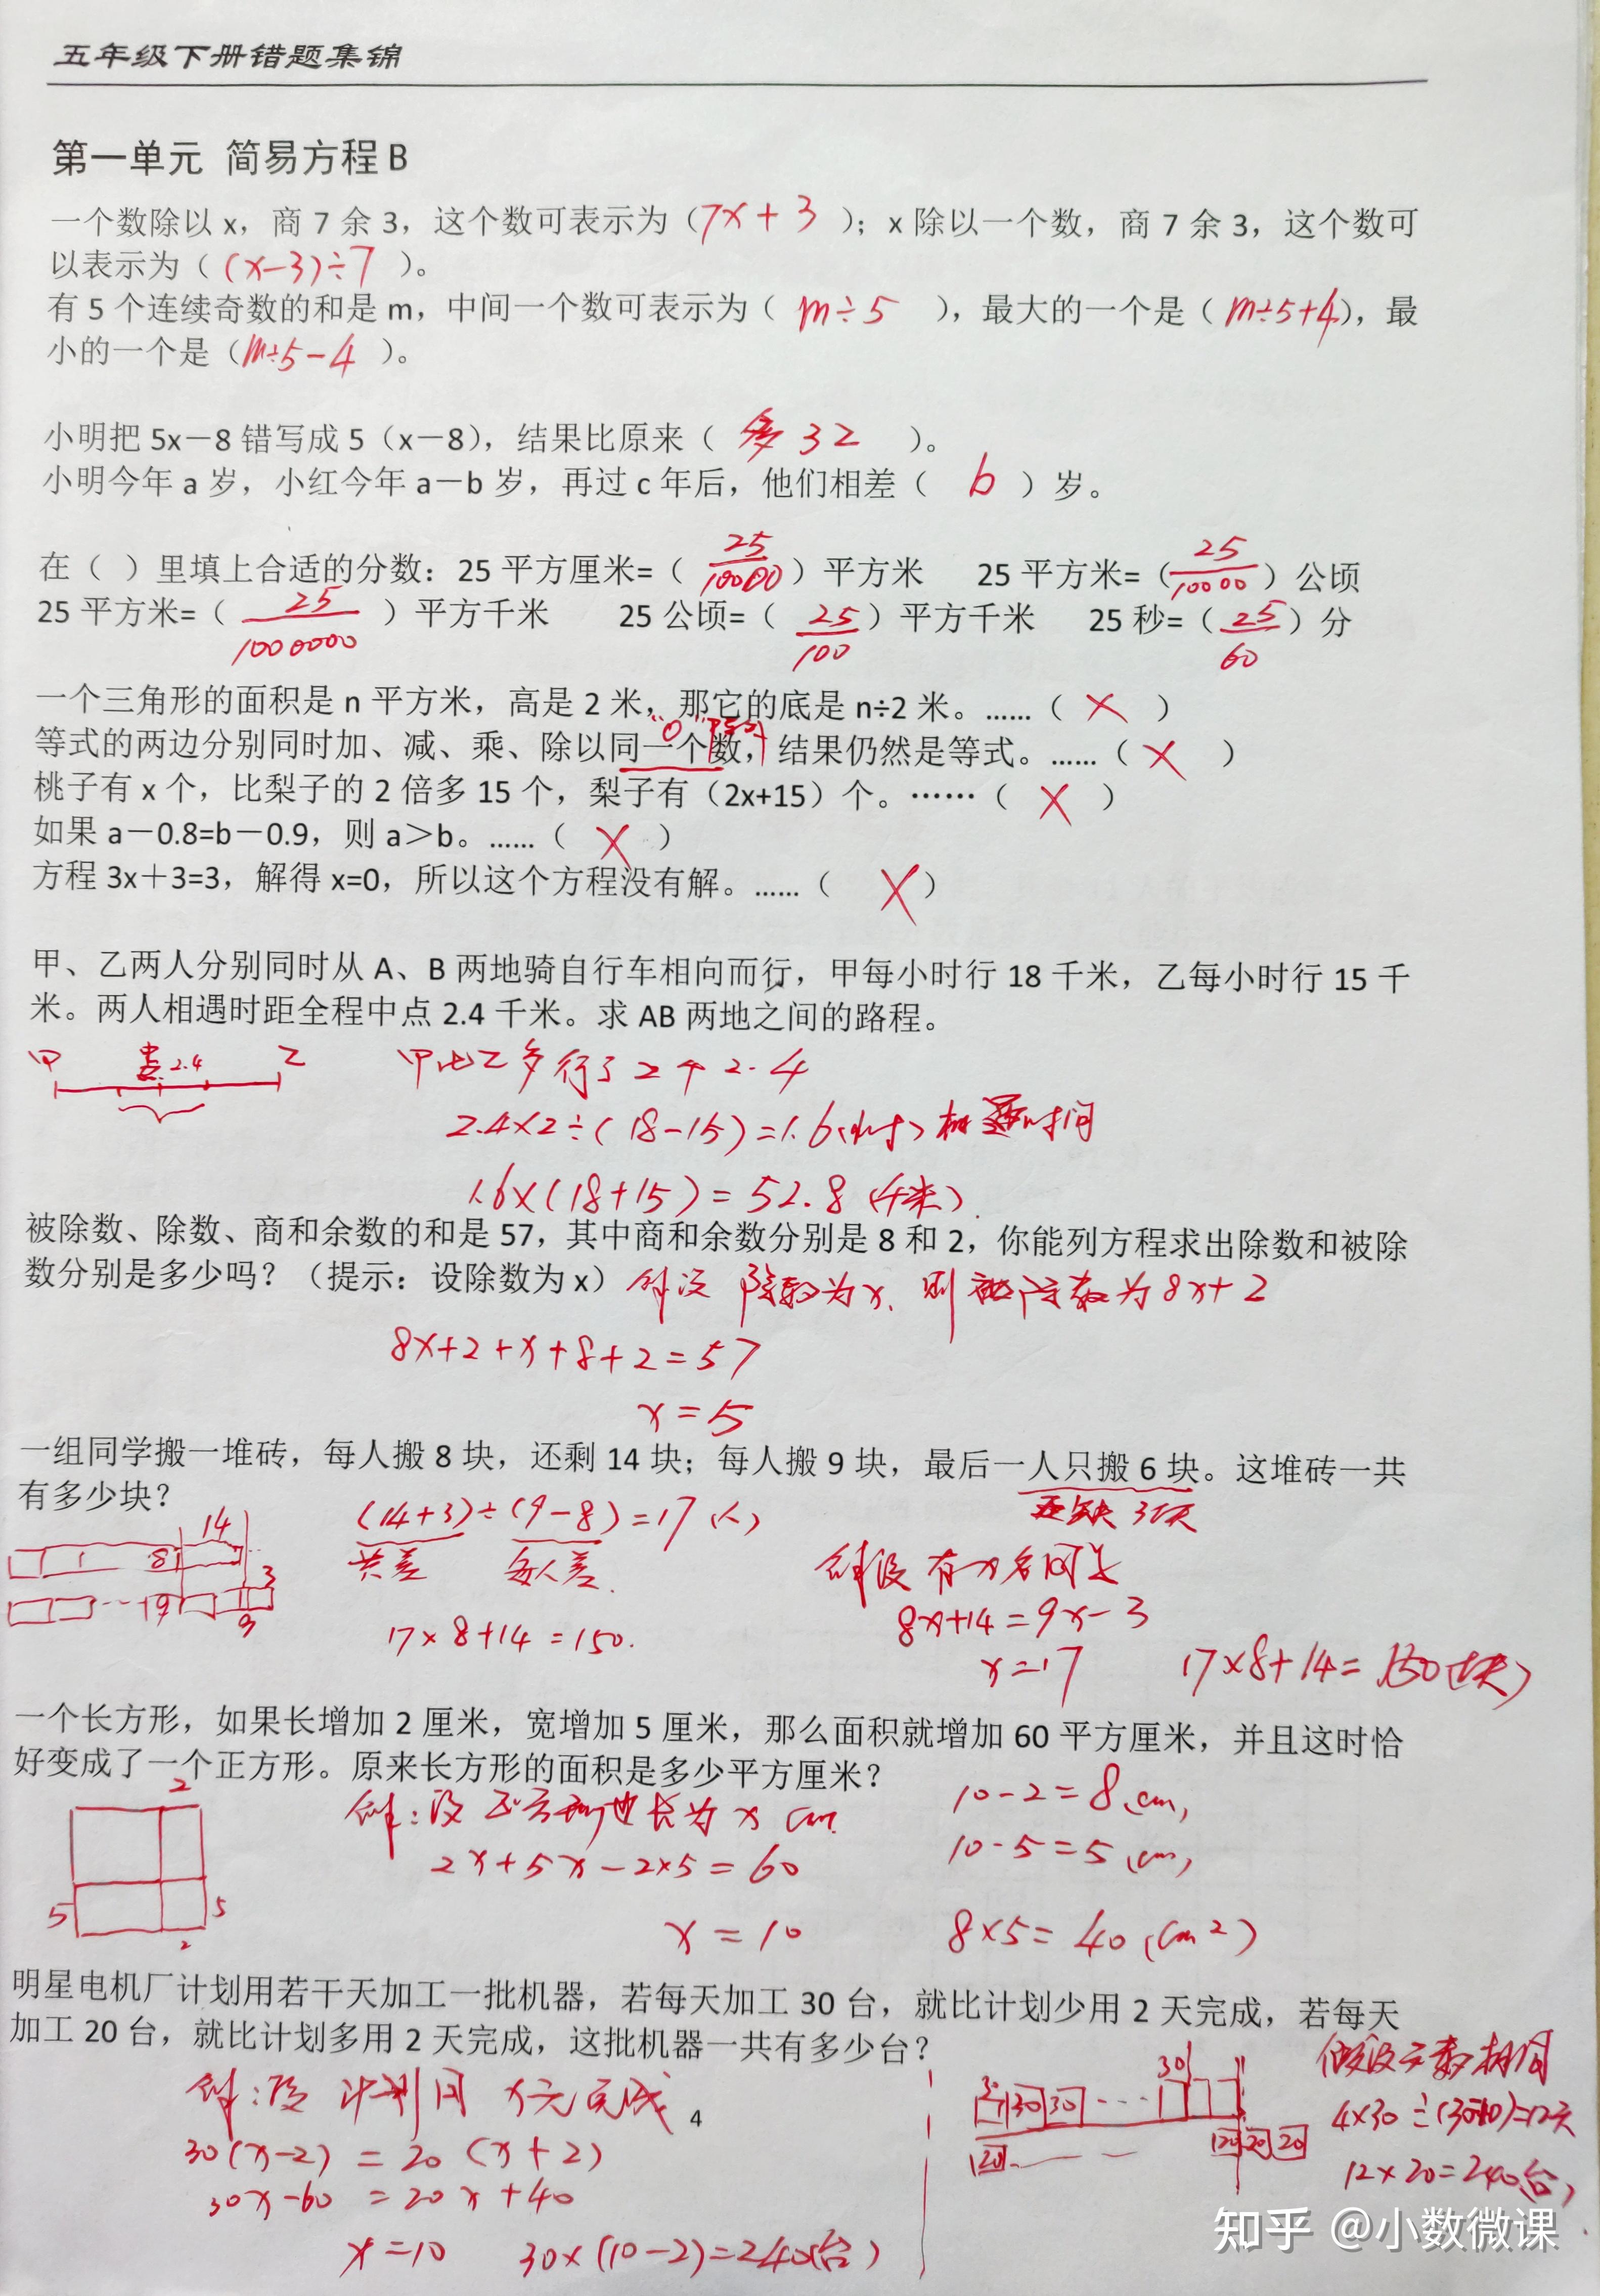 五年级下册错题集锦
第一单元 简易方程B
一个数除以 x，商 7 余 3，这个数可表示为（7x+3）；x 除以一个数，商 7 余 3，这个数可
以表示为（(x-3)÷7）。
有 5 个连续奇数的和是 m，中间一个数可表示为（m÷5），最大的一个是（m÷5+4），最
小的一个是（m÷5-4）。
小明把 5x－8 错写成 5（x－8），结果比原来（多 32）。
小明今年 a 岁，小红今年 a－b 岁，再过 c 年后，他们相差（b）岁。
在（ ）里填上合适的分数：25 平方厘米=（25/10000）平方米 25 平方米=（25/10000）公顷
25 平方米=（25/1000000）平方千米 25 公顷=（25/100）平方千米 25 秒=（25/60）分
一个三角形的面积是 n 平方米，高是 2 米，那它的底是 n÷2 米。……（×）
"0"除外
等式的两边分别同时加、减、乘、除以同一个数，结果仍然是等式。……（×）
桃子有 x 个，比梨子的 2 倍多 15 个，梨子有（2x+15）个。……（×）
如果 a－0.8=b－0.9，则 a＞b。……（×）
方程 3x＋3=3，解得 x=0，所以这个方程没有解。……（×）
甲、乙两人分别同时从 A、B 两地骑自行车相向而行，甲每小时行 18 千米，乙每小时行 15 千
米。两人相遇时距全程中点 2.4 千米。求 AB 两地之间的路程。
甲 2.4 乙 甲比乙多行了2个2.4
2.4×2÷(18-15)=1.6(小时) 相遇时间
1.6×(18+15)=52.8(千米)
被除数、除数、商和余数的和是 57，其中商和余数分别是 8 和 2，你能列方程求出除数和被除
数分别是多少吗？（提示：设除数为 x）解设 除数为x，则被除数为8x+2
8x+2+x+8+2=57
x=5
一组同学搬一堆砖，每人搬 8 块，还剩 14 块；每人搬 9 块，最后一人只搬 6 块。这堆砖一共
有多少块？
14 (14+3)÷(9-8)=17(人) 还缺3块
8 共差 每人差 解设有x名同学
3
9 9 17×8+14=150. 8x+14=9x-3
x=17 17×8+14=150(块)
一个长方形，如果长增加 2 厘米，宽增加 5 厘米，那么面积就增加 60 平方厘米，并且这时恰
好变成了一个正方形。原来长方形的面积是多少平方厘米？
2 解：设正方形边长为x cm. 10-2=8(cm)
2x+5x-2×5=60 10-5=5(cm)
5 5
x=10 8×5=40(cm²)
2
明星电机厂计划用若干天加工一批机器，若每天加工 30 台，就比计划少用 2 天完成，若每天
加工 20 台，就比计划多用 2 天完成，这批机器一共有多少台？
解：设计划用x天完成 30 30 30 假设天数相同
4
30(x-2)=20(x+2) 20 20 20 20
30x-60=20x+40 12×20=240(台)
x=10 30×(10-2)=240(台)
知乎 @小数微课